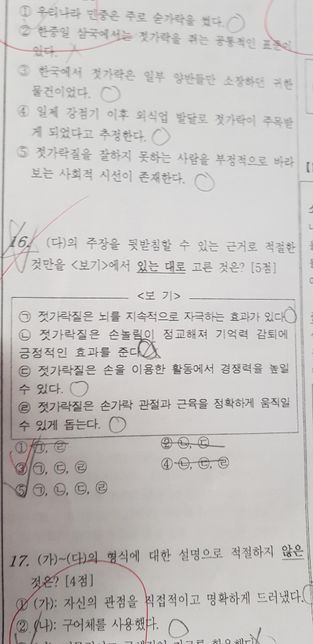 ① 우리나라 민중은 주로 숟가락을 썼다.
② 한중일 삼국에서는 젓가락을 쥐는 공통적인 표준이
있다.
③ 한국에서 젓가락은 일부 양반들만 소장하던 귀한
물건이었다.
④ 일제 강점기 이후 외식업 발달로 젓가락이 주목받
게 되었다고 추정한다.
⑤ 젓가락질을 잘하지 못하는 사람을 부정적으로 바라
보는 사회적 시선이 존재한다.
16. (다)의 주장을 뒷받침할 수 있는 근거로 적절한
것만을 <보기>에서 있는 대로 고른 것은? [5점]
<보 기>
㉠ 젓가락질은 뇌를 지속적으로 자극하는 효과가 있다.
㉡ 젓가락질은 손놀림이 정교해져 기억력 감퇴에
긍정적인 효과를 준다.
㉢ 젓가락질은 손을 이용한 활동에서 경쟁력을 높일
수 있다.
㉣ 젓가락질은 손가락 관절과 근육을 정확하게 움직일
수 있게 돕는다.
① ㉠, ㉣ ② ㉡, ㉢
③ ㉠, ㉢, ㉣ ④ ㉡, ㉢, ㉣
⑤ ㉠, ㉡, ㉢, ㉣
17. (가)~(다)의 형식에 대한 설명으로 적절하지 않은
것은? [4점]
① (가): 자신의 관점을 직접적이고 명확하게 드러냈다.
② (나): 구어체를 사용했다.